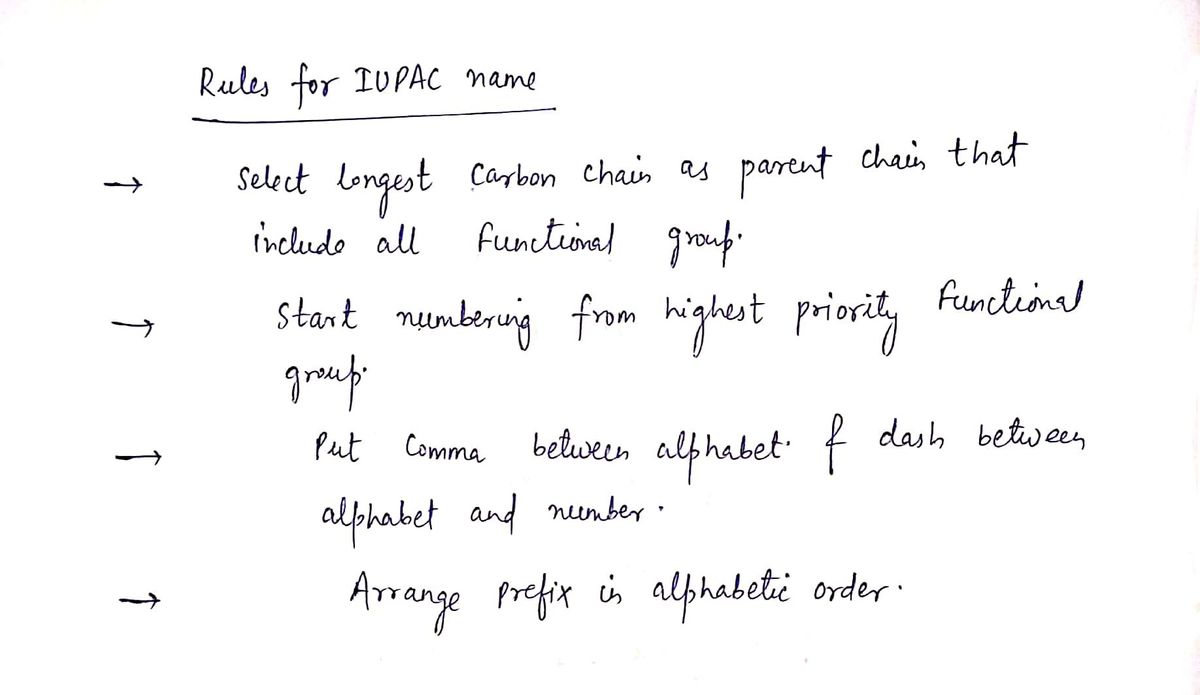 Rules for IUPAC name
→ Select longest Carbon chain as parent chain that
include all functional group.
→ Start numbering from highest priority functional
group.
→ Put Comma between alphabet. & dash between
alphabet and number.
→ Arrange prefix in alphabetic order.